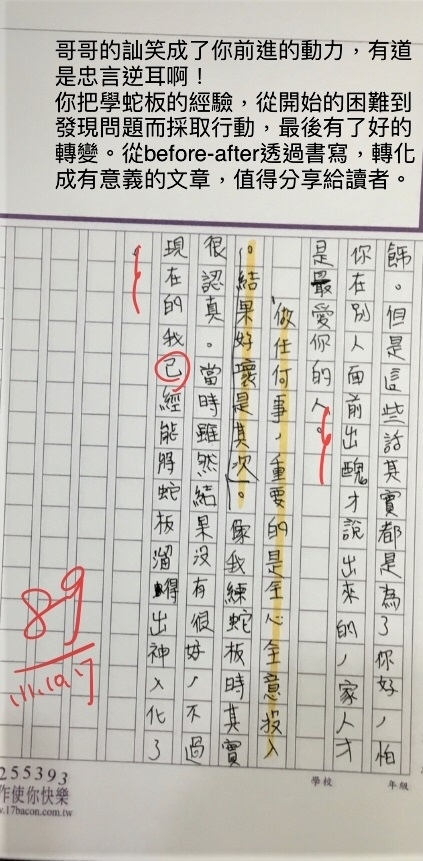 哥哥的訕笑成了你前進的動力，有道
是忠言逆耳啊！
你把學蛇板的經驗，從開始的困難到
發現問題而採取行動，最後有了好的
轉變。從before-after透過書寫，轉化
成有意義的文章，值得分享給讀者。
飾。但是這些話其實都是為了你好，怕
你在別人面前出醜才說出來的，家人才
是最愛你的人。
「做任何事，重要的是全心全意投入
。結果好壞是其次」。像我練蛇板時其實
很認真。當時雖然結果沒有很好，不過
現在的我已經能將蛇板溜得出神入化了
。
89
255393
作使你快樂
.17bacon.com.tw
學校
年級